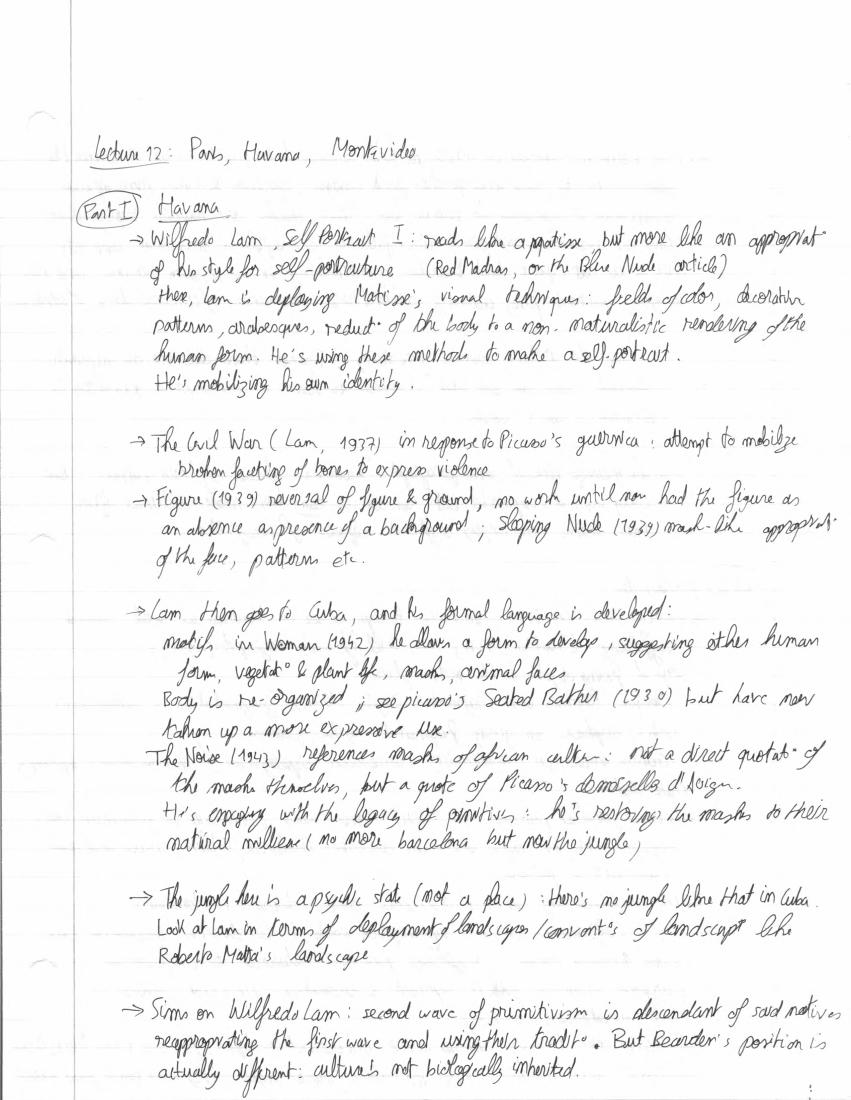 Lecture 12: Paris, Havana, Montevideo
Part I Havana
→ Wilfredo Lam, Self Portrait I: reads like a matisse but more like an appropriat°
of his style for self-portraiture (Red Madras, or the Blue Nude article)
there, Lam is deploying Matisse's visual techniques: fields of color, decorative
patterns, arabesques, reduct° of the body to a non-naturalistic rendering of the
human form. He's using these methods to make a self-portrait.
He's mobilizing his own identity.
→ The Civil War (Lam, 1937) in response to Picasso's guernica: attempt to mobilize
broken faceting of bones to express violence
→ Figure (1939) reversal of figure & ground, no work until now had the figure as
an absence as presence of a background; Sleeping Nude (1939) mask-like appropriat°
of the face, patterns etc.
→ Lam then goes to Cuba, and his formal language is developed:
motifs in Woman (1942) he allows a form to develop, suggesting either human
form, vegetat° & plant life, masks, animal faces
Body is re-organized; see picasso's Seated Bather (1930) but have now
taken up a more expressive use.
The Noise (1943) references masks of african culture: not a direct quotat° of
the masks themselves, but a quote of Picasso's demoiselles d'Avign.
He's engaging with the legacy of primitives: he's restoring the masks to their
natural millieu (no more barcelona but now the jungle)
→ The jungle here is a psychic state (not a place): there's no jungle like that in Cuba.
Look at Lam in terms of deployment of landscapes/convent°s of landscape like
Roberto Matta's landscape
→ Sims on Wilfredo Lam: second wave of primitivism is descendant of said natives
reappropriating the first wave and using their tradit°. But Bearden's position is
actually different: culture's not biologically inherited.